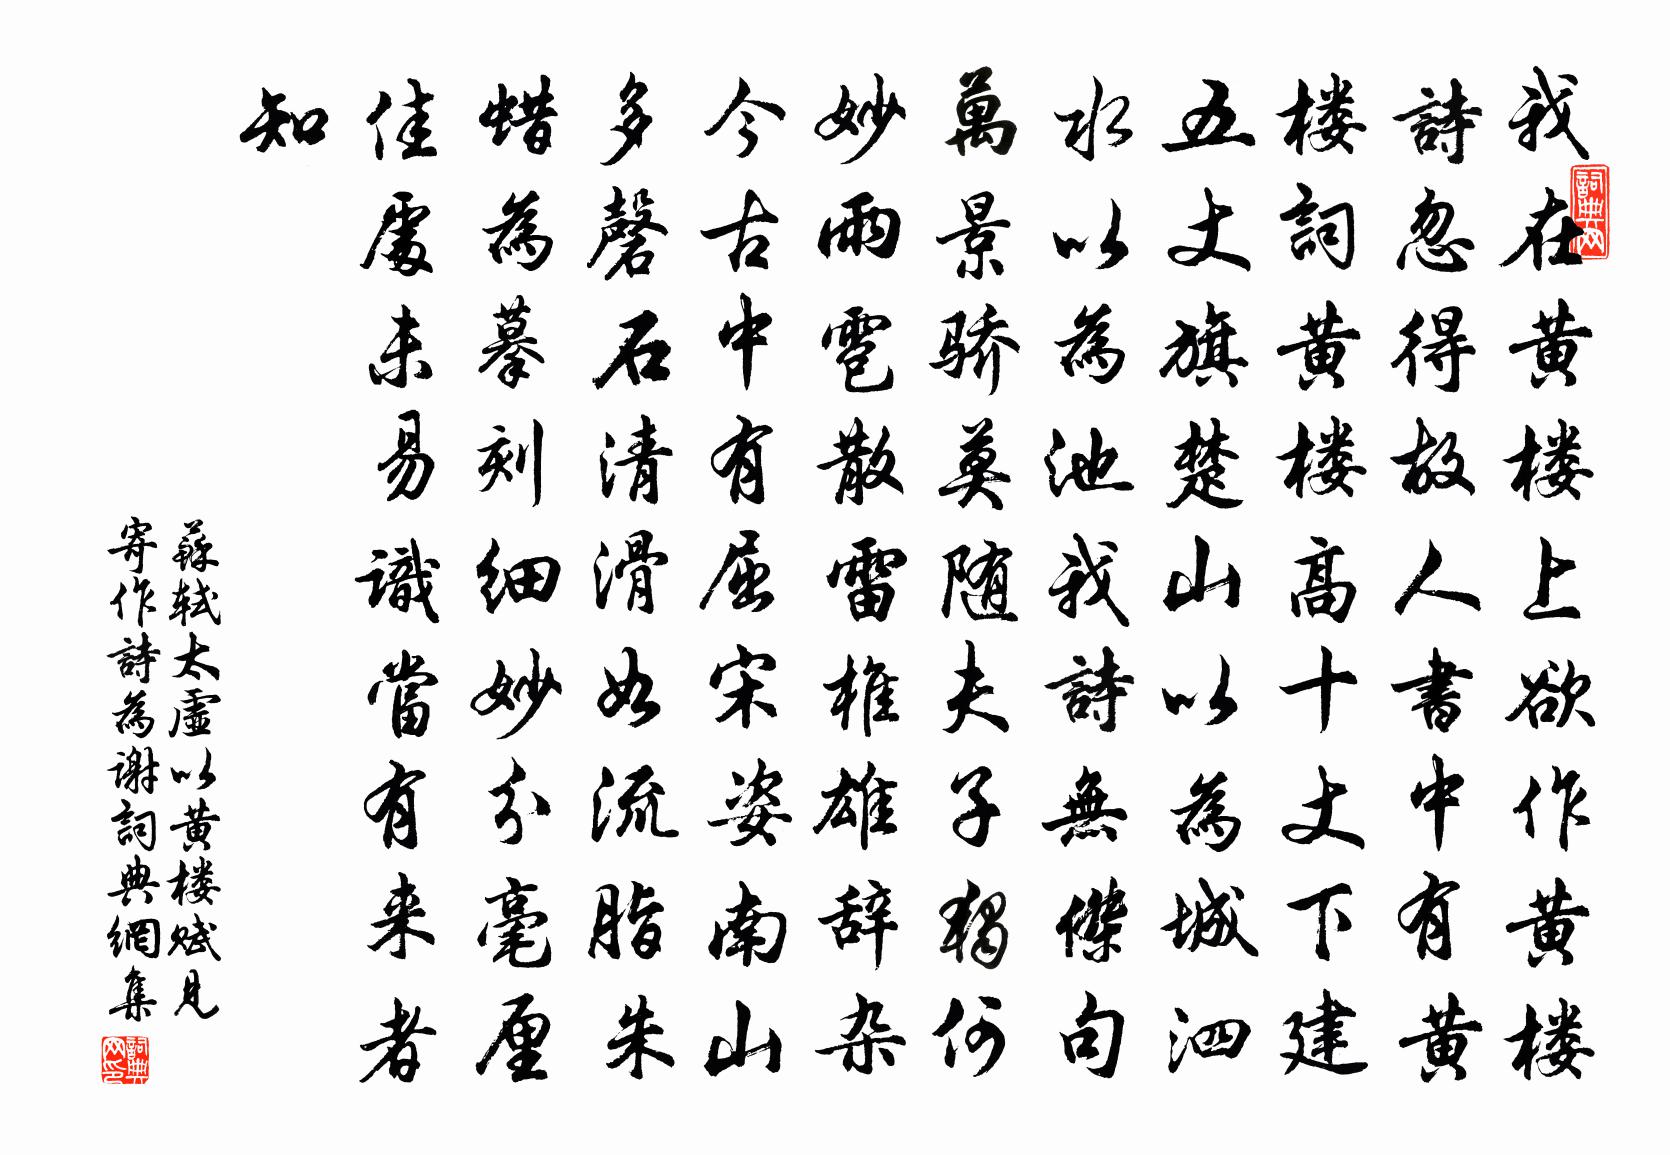 我在黄楼上欲作黄楼
詩忽得故人書中有黄
楼詞黄楼高十丈下建
五丈旗楚山以為城泗
水以為池我詩無傑句
萬景骄莫随夫子獨何
妙雨雹散雷椎雄辞杂
今古中有屈宋姿南山
多磬石清滑如流脂朱
蜡為摹刻细妙分毫厘
佳處未易識當有来者
知
蘇軾太虚以黄楼赋見
寄作詩為谢詞典網集
詞典网
詞典网印